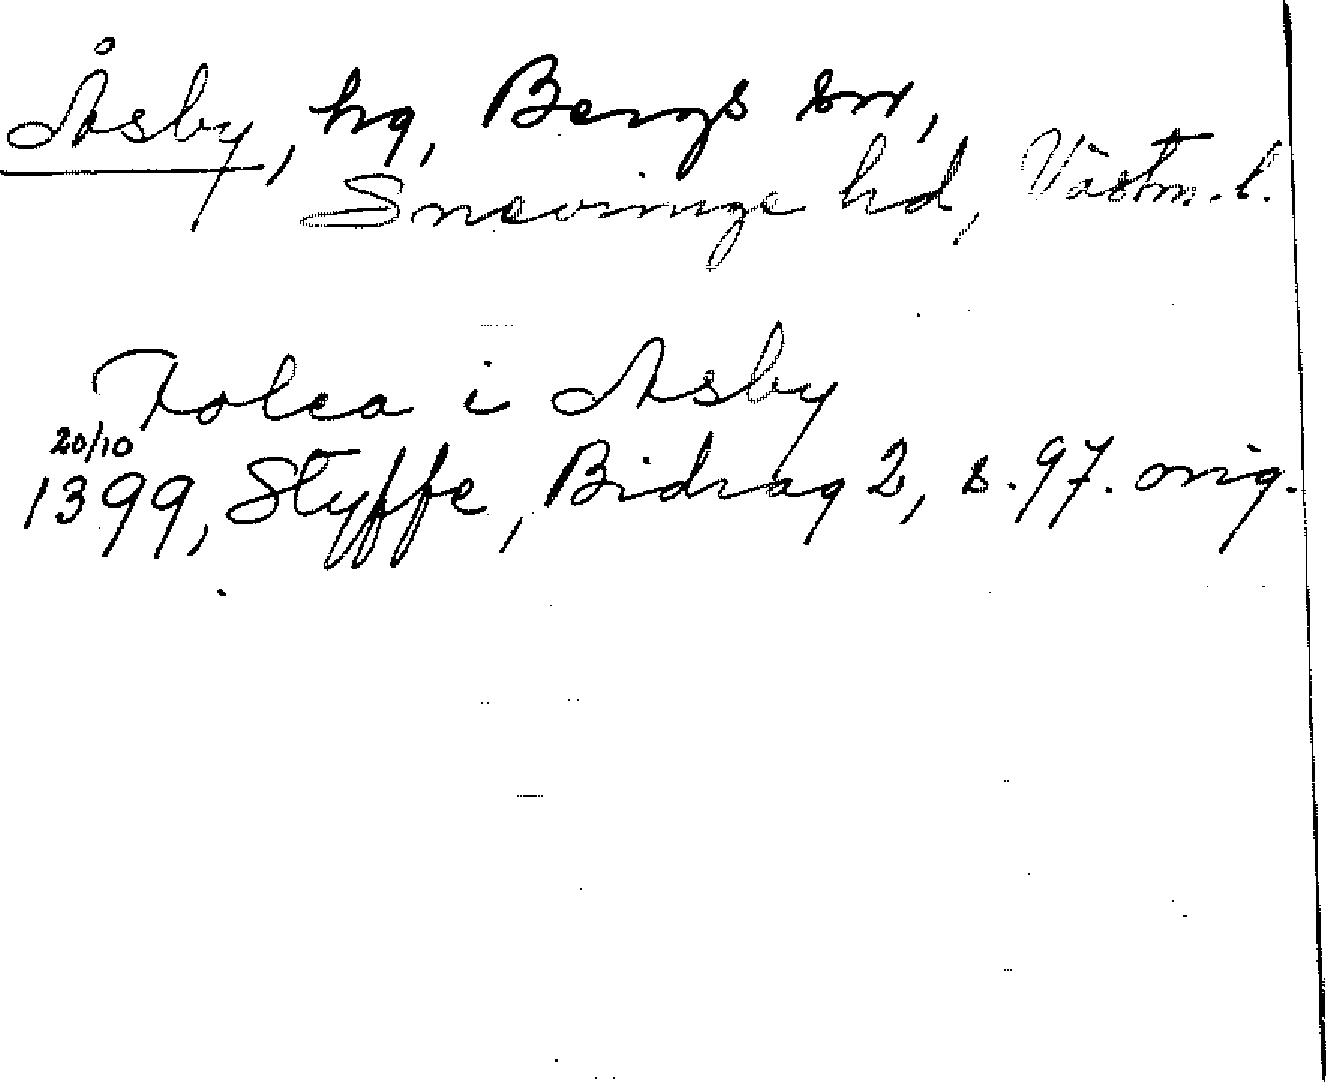 Åsby, hg, Bergs sn,
Snevringe hd, Västm.l.
i Asby
20/10
1399, Styffe, Bidrag 2, s. 97. orig.